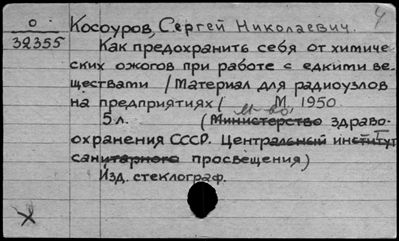 4
О.
32355
Косоуров, Сергей Николаевич.
Как предохранить себя от химиче-
ских ожогов при работе с едкими ве-
ществами /Материал для радиоузлов
на предприятиях/ М. 1950
5 л. (Министерство здраво-
охранения СССР. Центральный институт
санитарного просвещения)
Изд. стеклограф.